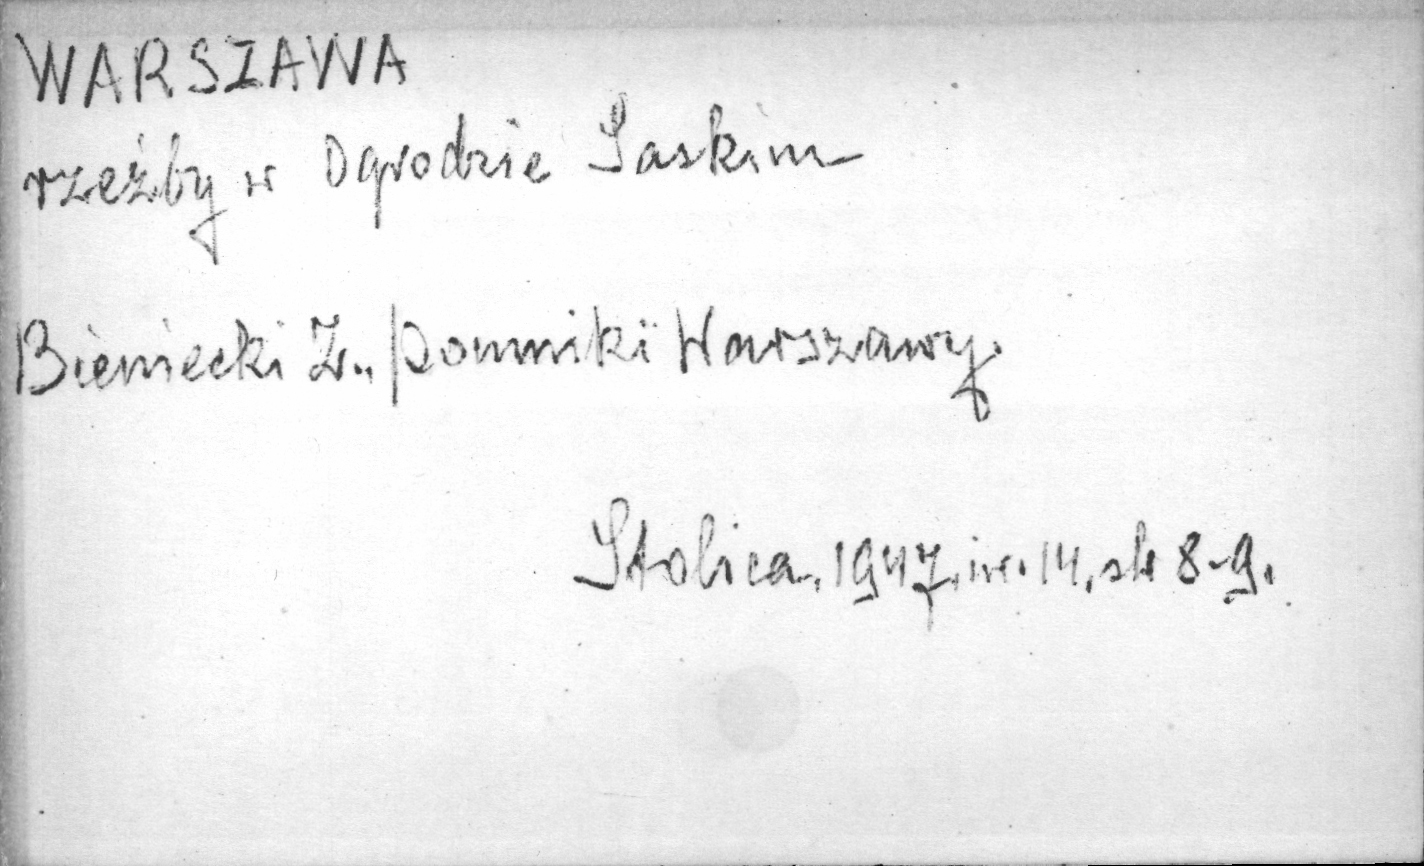 WARSZAWA
rzeźby w Ogrodzie Saskim
Bieniecki Z., Pomniki Warszawy.
Stolica, 1947, nr. 14, str 8-9.